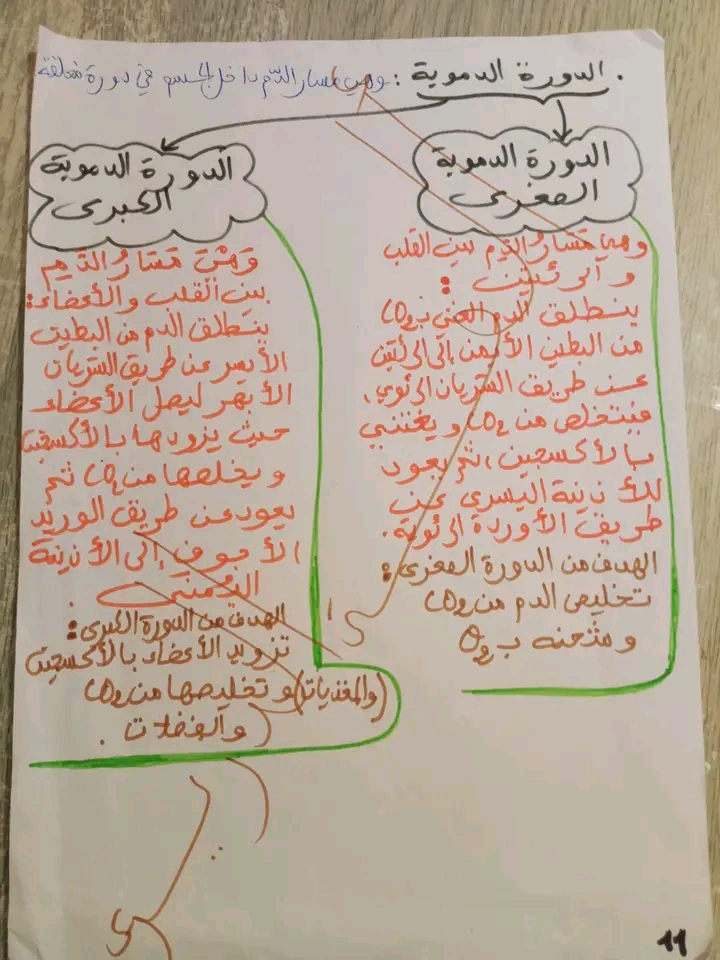 . الدورة الدموية : وهي مسار الدّم داخل الجسم في دورة مغلقة
الدورة الدموية
الصغرى
وهي مسار الدّم بين القلب
و الرئتين :
ينطلق الدم الغني بـ CO2
من البطين الأيمن إلى الرئتين
عن طريق الشريان الرئوي،
فيتخلص من CO2 و يغتني
بالأكسجين، ثم يعود
للأذينة اليسرى عن
طريق الأوردة الرئوية.
الهدف من الدورة الصغرى :
تخليص الدم من CO2
و شحنه بـ O2
الدورة الدموية
الكبرى
وهي مسار الدّم
بين القلب والأعضاء:
ينطلق الدم من البطين
الأيسر عن طريق الشريان
الأبهر ليصل الأعضاء
حيث يزودها بالأكسجين
و يخلصها من CO2 ثم
يعود عن طريق الوريد
الأجوف إلى الأذينة
اليمنى .
الهدف من الدورة الكبرى :
تزويد الأعضاء بالأكسجين
(والمغذيات) و تخليصها من CO2
والفضلات .
11